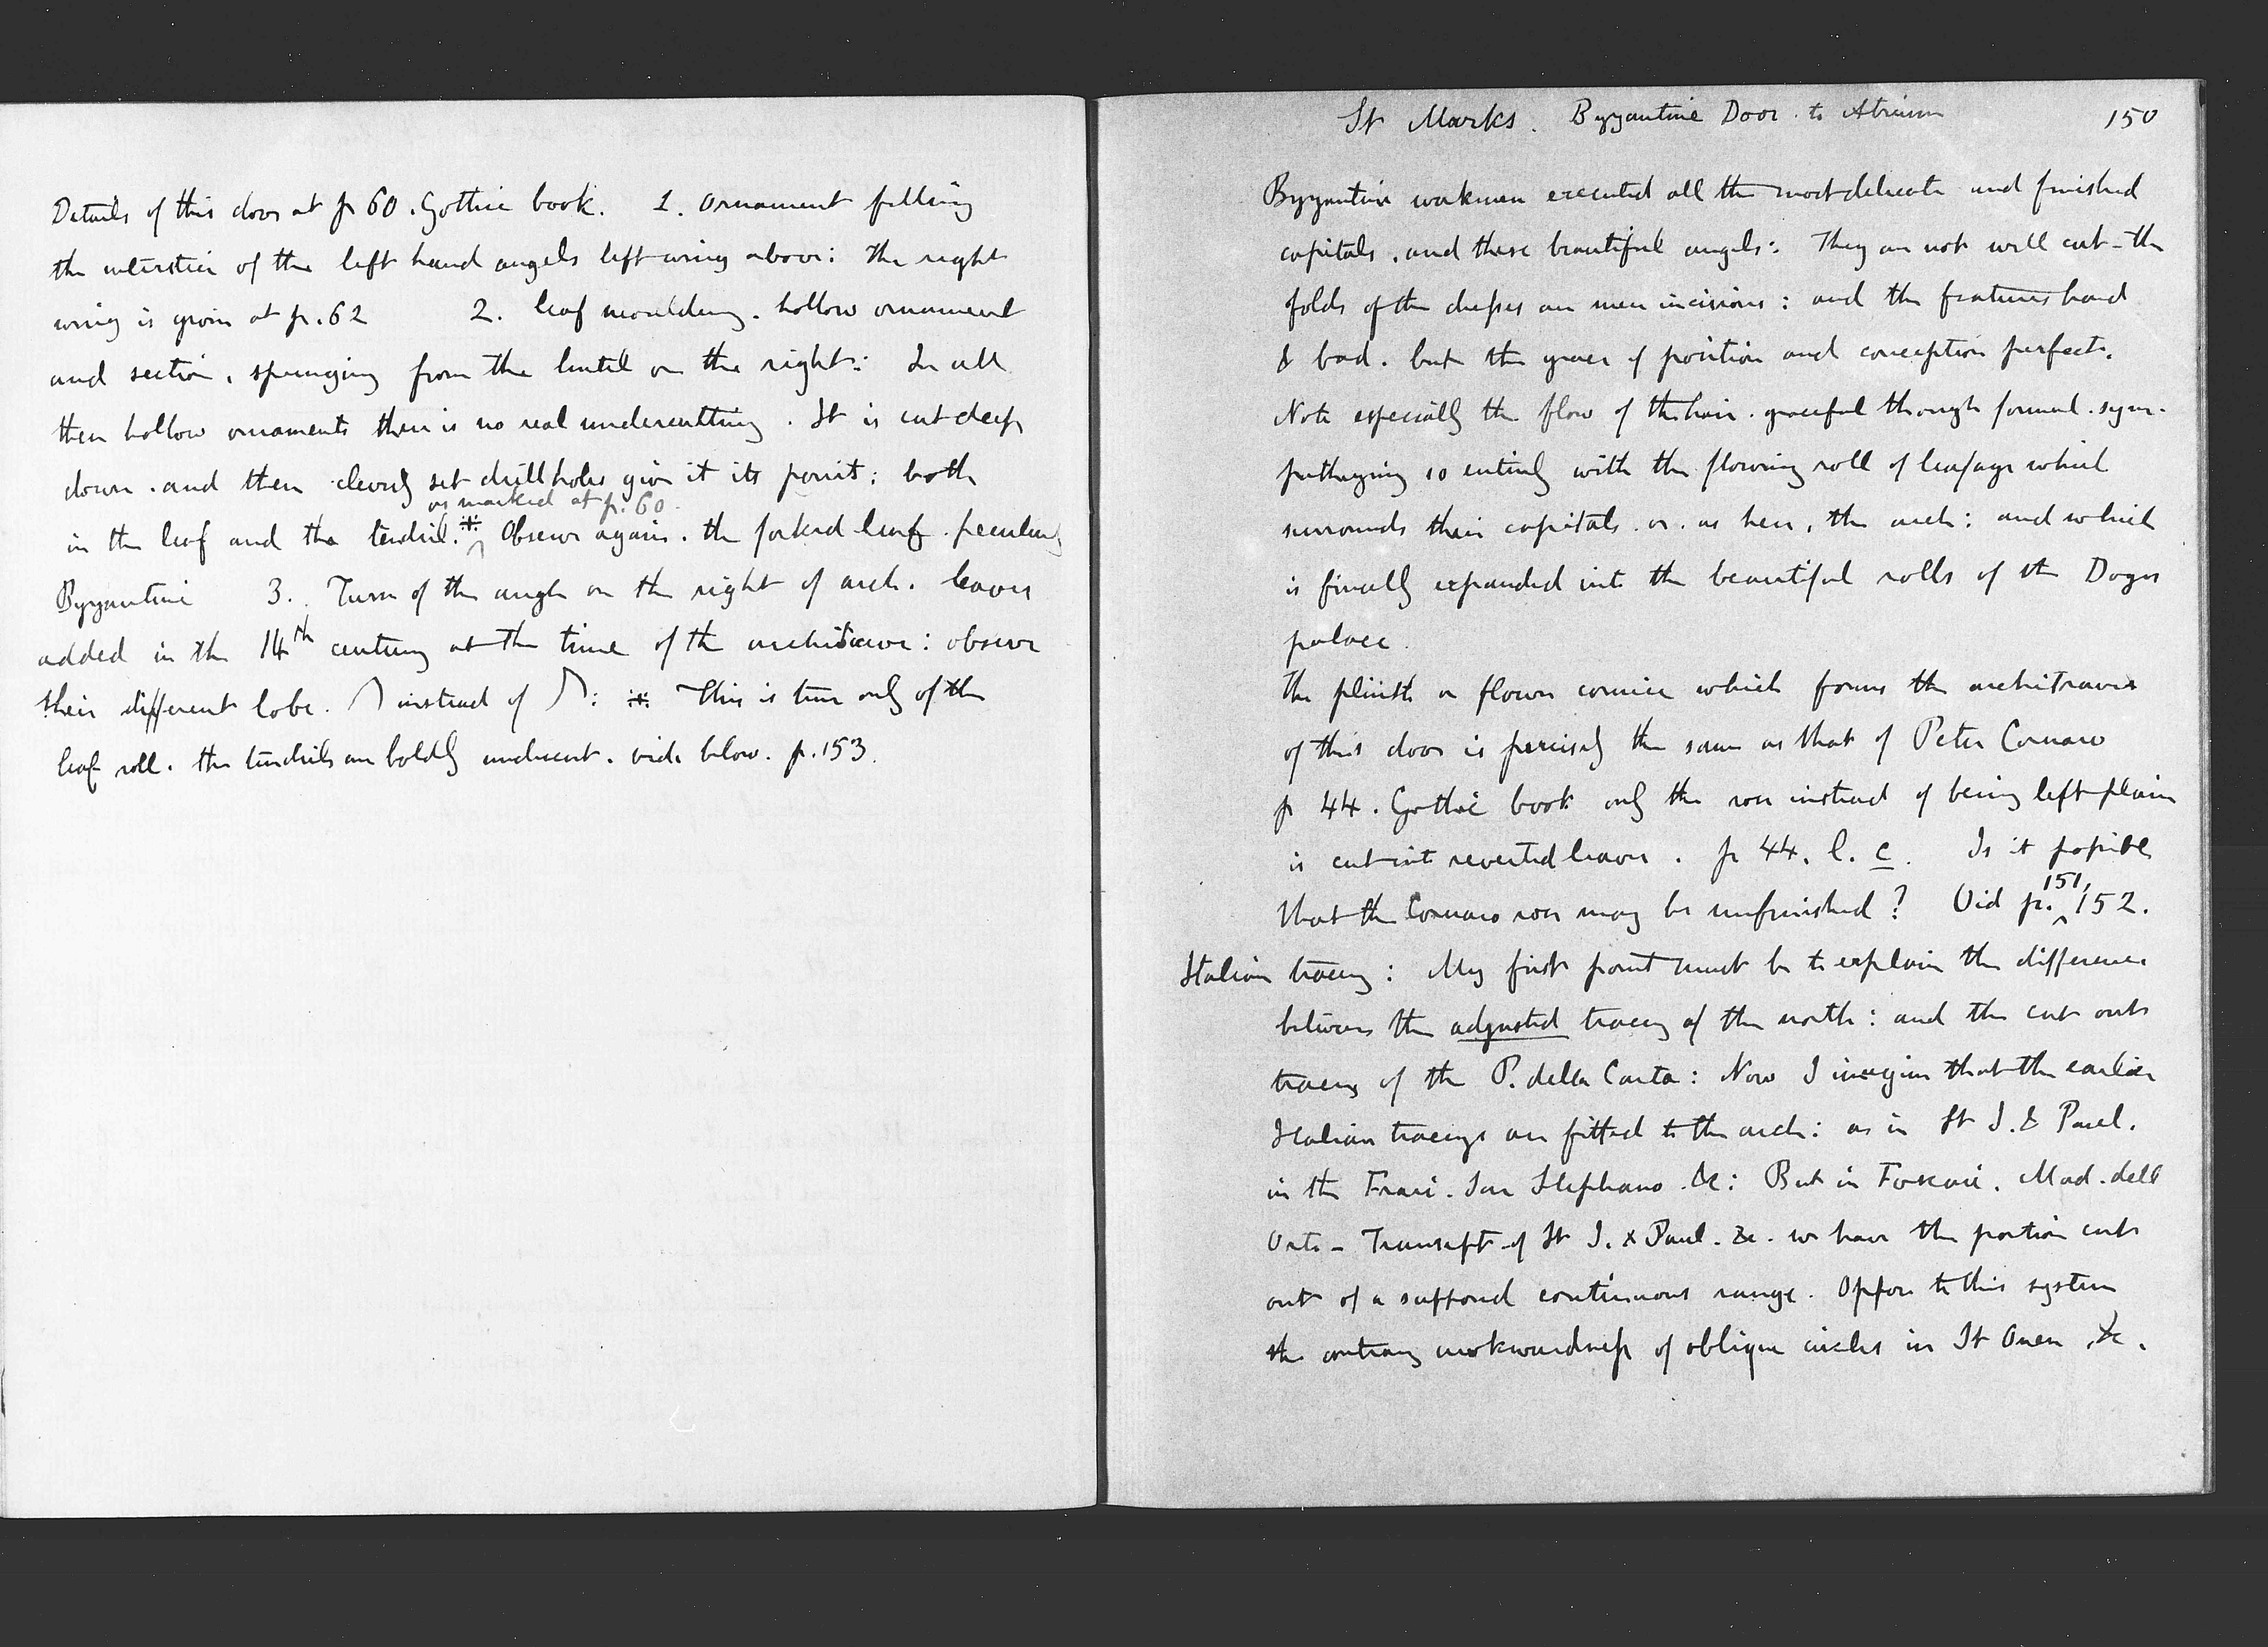 Details of this door at p 60. Gothic book. 1. Ornament filling
the interstice of the left hand angels left wing above: the right
wing is given at p. 62 2. leaf moulding. hollow ornament
and section, springing from the lintel on the right: In all
these hollow ornaments there is no real undercutting. It is cut deep
down. and then cleverly set drill holes give it its point: both
as marked at p. 60.
in the leaf and the tendril. Observe again. the forked leaf. peculiarly
Byzantine 3. Turn of the angle on the right of arch. leaves
added in the 14th century at the time of the architrave: observe
their different lobe. instead of : This is true only of the
leaf roll. the tendrils are boldly undercut. vide below. p. 153.
St Marks. Byzantine Door to Atrium 150
Byzantine workmen executed all the most delicate and finished
capitals. and these beautiful angels: They are not well cut - the
folds of the dresses are mere incisions: and the features hard
& bad. but the grace of position and conception perfect.
Note especially the flow of the hair. graceful though formal. sym-
pathizing so entirely with the flowing roll of leafage which
surrounds their capitals. or. as here, the arch: and which
is finally expanded into the beautiful rolls of the Doges
palace.
The plinth or flower cornice which forms the architraves
of this door is precisely the same as that of Peter Cornaro
p 44. Gothic book only the rose instead of being left plain
is cut into reverted leaves. p 44. l. c. Is it possible
that the Cornaro rose may be unfinished? Vid p. 151, 152.
Italian tracery: My first point must be to explain the difference
between the adjusted tracery of the north: and the cut out
tracery of the P. della Carta: Now I imagine that the earlier
Italian tracerys are fitted to the arch: as in St J. & Paul.
in the Frari. San Stephano &c: But in Foscari. Mad. dell
Orto - Transept of St J. & Paul. &c. we have the portion cut
out of a supposed continuous range. Oppose to this system
the contrary awkwardness of oblique circles in St Ouen &c.